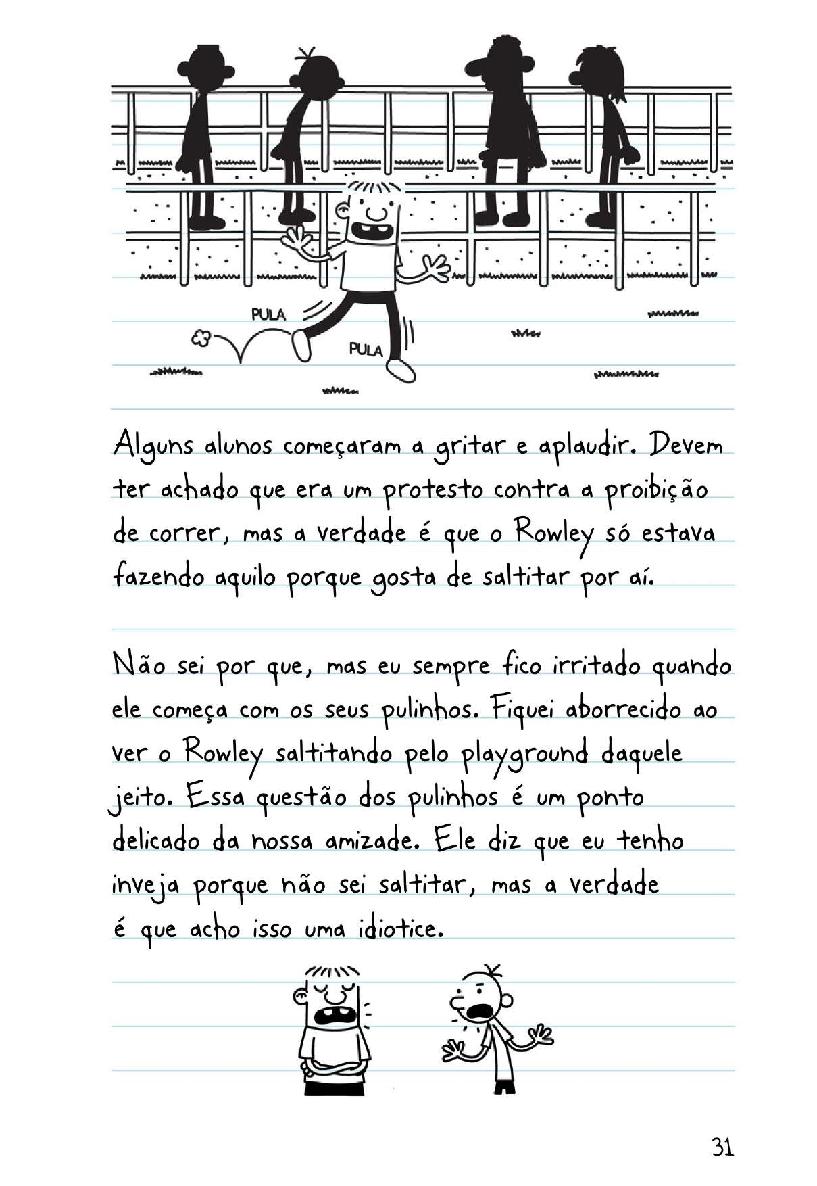 PULA
PULA
Alguns alunos começaram a gritar e aplaudir. Devem
ter achado que era um protesto contra a proibição
de correr, mas a verdade é que o Rowley só estava
fazendo aquilo porque gosta de saltitar por aí.
Não sei por que, mas eu sempre fico irritado quando
ele começa com os seus pulinhos. Fiquei aborrecido ao
ver o Rowley saltitando pelo playground daquele
jeito. Essa questão dos pulinhos é um ponto
delicado da nossa amizade. Ele diz que eu tenho
inveja porque não sei saltitar, mas a verdade
é que acho isso uma idiotice.
31